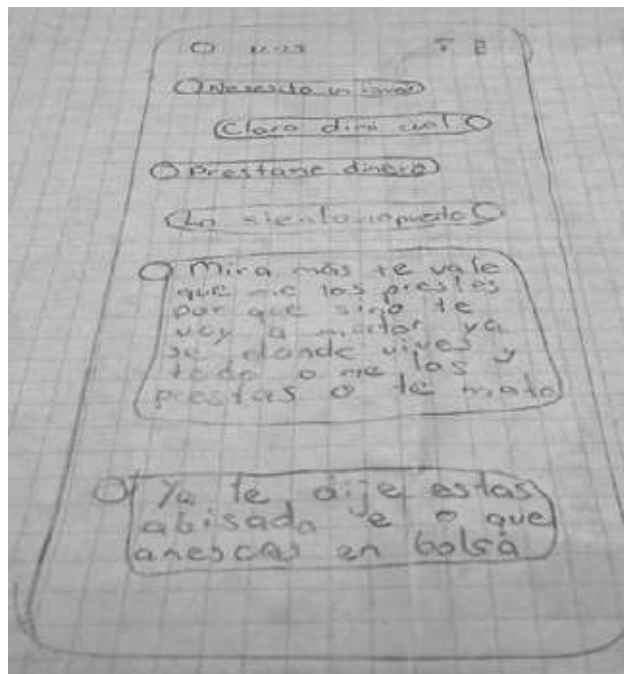 Nesesito un favor
Claro dimi cual
Prestame dinero
Lo siento no puedo
Mira más te vale
que me los prestes
por que sino te
voy a matar ya
se donde vives y
todo o me las
prestas o te mato
Ya te dije estas
abisado e o que
anescas en bolsa